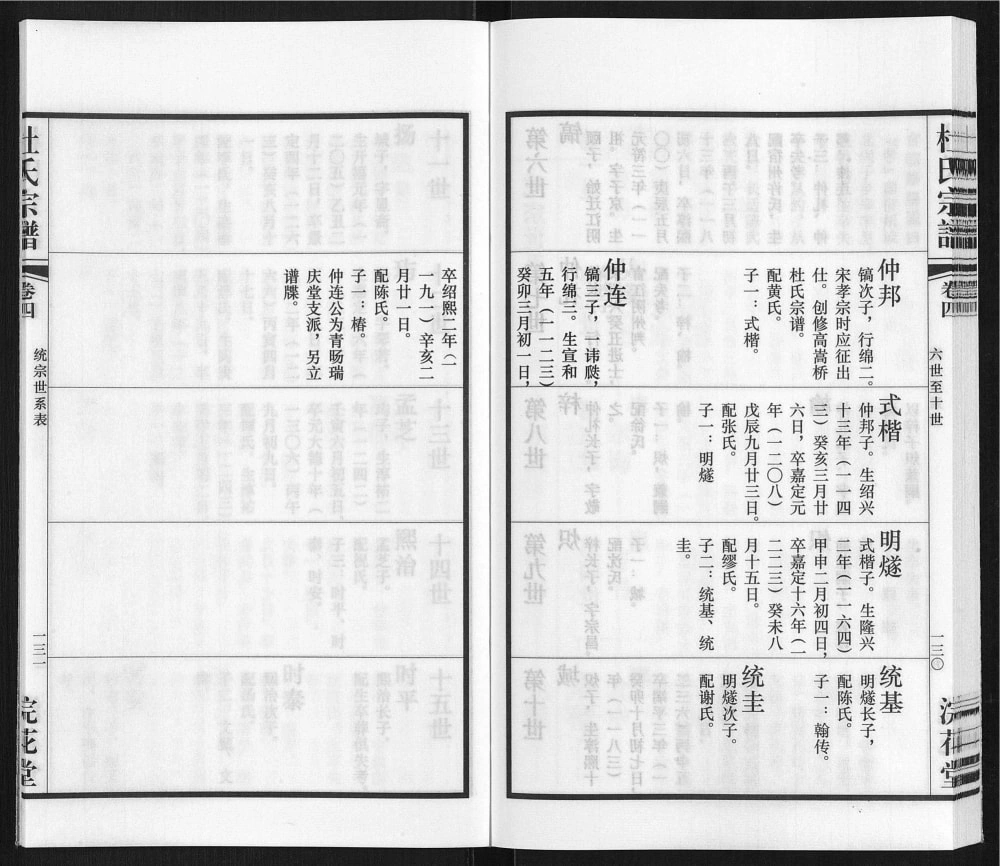 杜氏宗谱
卷四
六世至十世
一三〇
浣花堂
仲邦
镐次子，行绵二。
宋孝宗时应征出
仕。创修高嵩桥
杜氏宗谱。
配黄氏。
子一：式楷。
仲连
镐三子，行讳牋，
行绵三。生宣和
五年（一一二三）
癸卯三月初一日，
式楷
仲邦子。生绍兴
十三年（一一四
三）癸亥三月廿
六日，卒嘉定元
年（一二〇八）
戊辰九月廿三日。
配张氏。
子一：明燧
明燧
式楷子。生隆兴
二年（一一六四）
甲申二月初四日，
卒嘉定十六年（一
二二三）癸未八
月十五日。
配缪氏。
子二：统基、统
圭。
统基
明燧长子，
配陈氏。
子一：翰传。
统圭
明燧次子。
配谢氏。
卒绍熙二年（一
一九一）辛亥二
月廿一日。
配陈氏。
子一：椿。
仲连公为青旸瑞
庆堂支派，另立
谱牒。
杜氏宗谱
卷四
统宗世系表
一三一
浣花堂